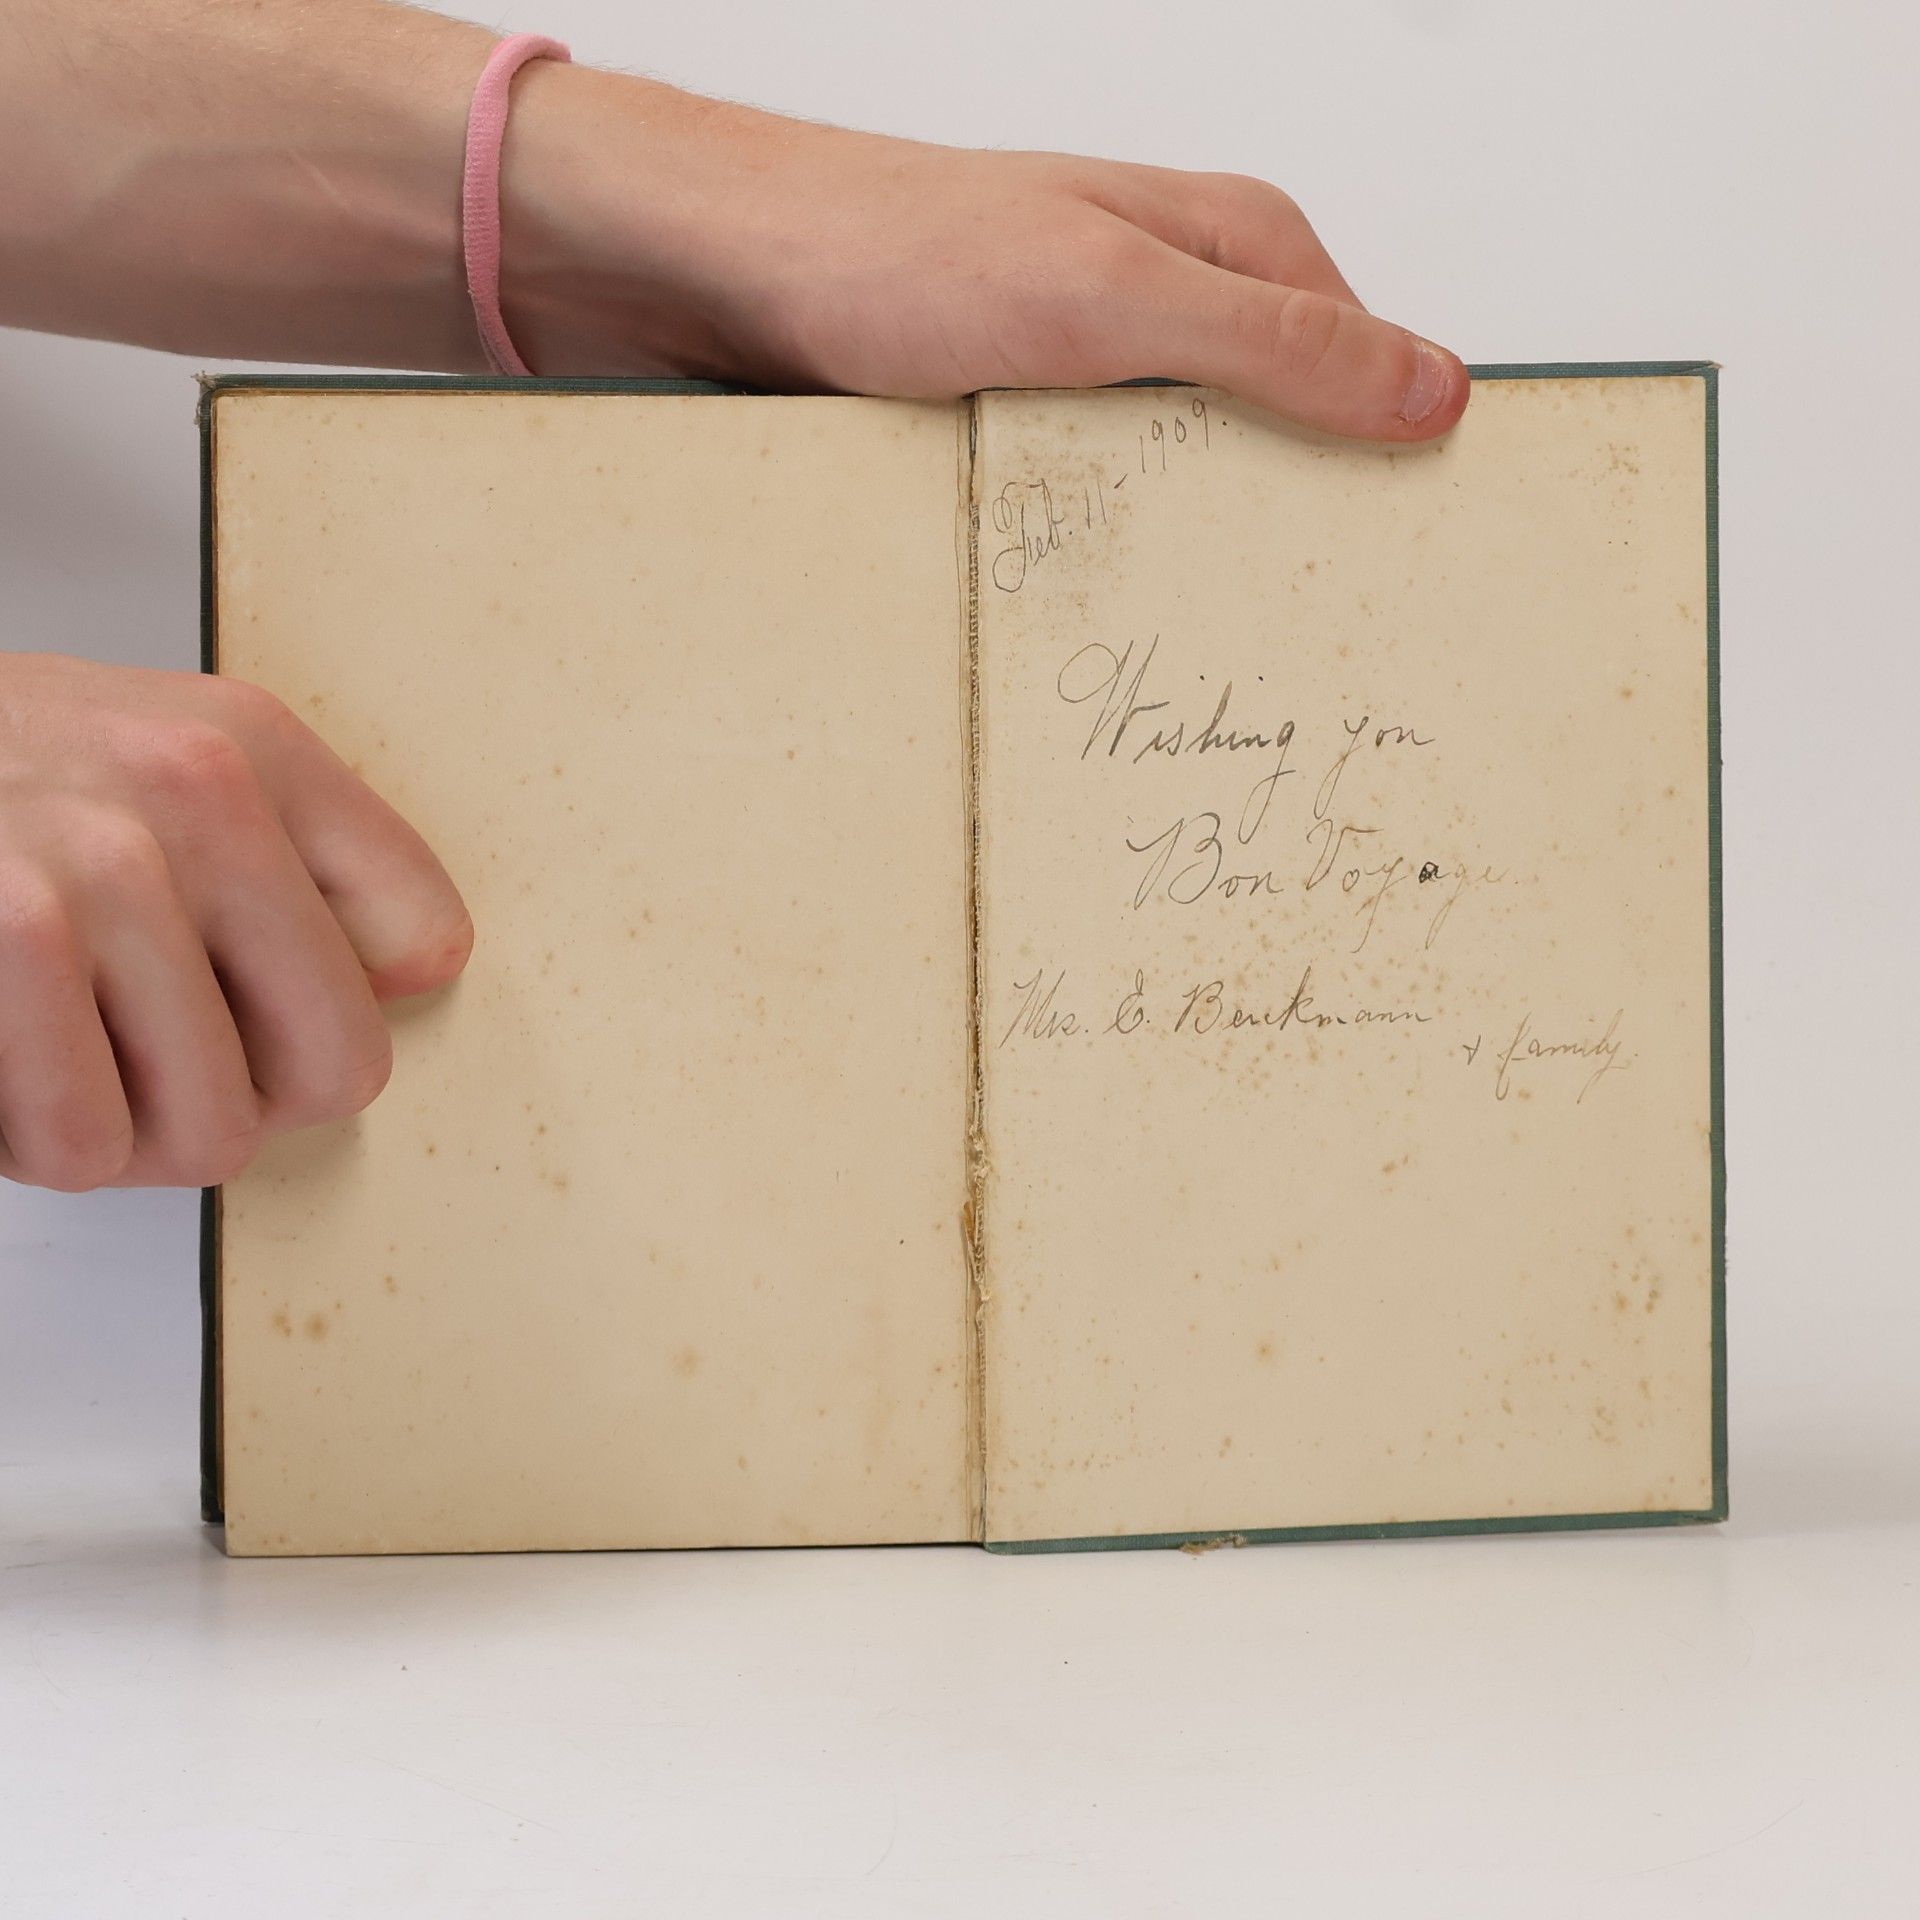 Feb. 11 - 1909.
Wishing you
Bon Voyage.
Mrs. E. Berckmann
+ family.